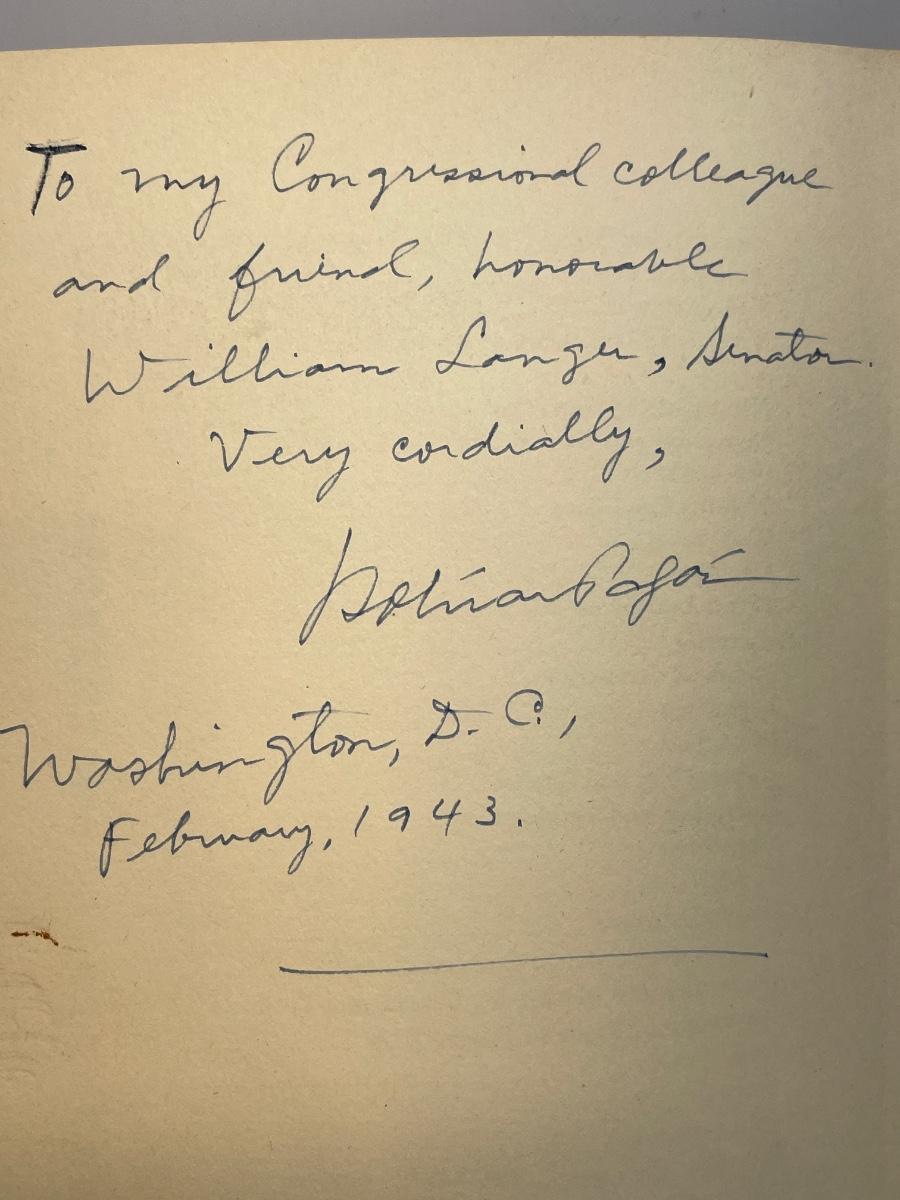 To my Congressional colleague
and friend, honorable
William Langer, Senator.
Very cordially,
Bolívar Pagán
Washington, D.C.,
February, 1943.